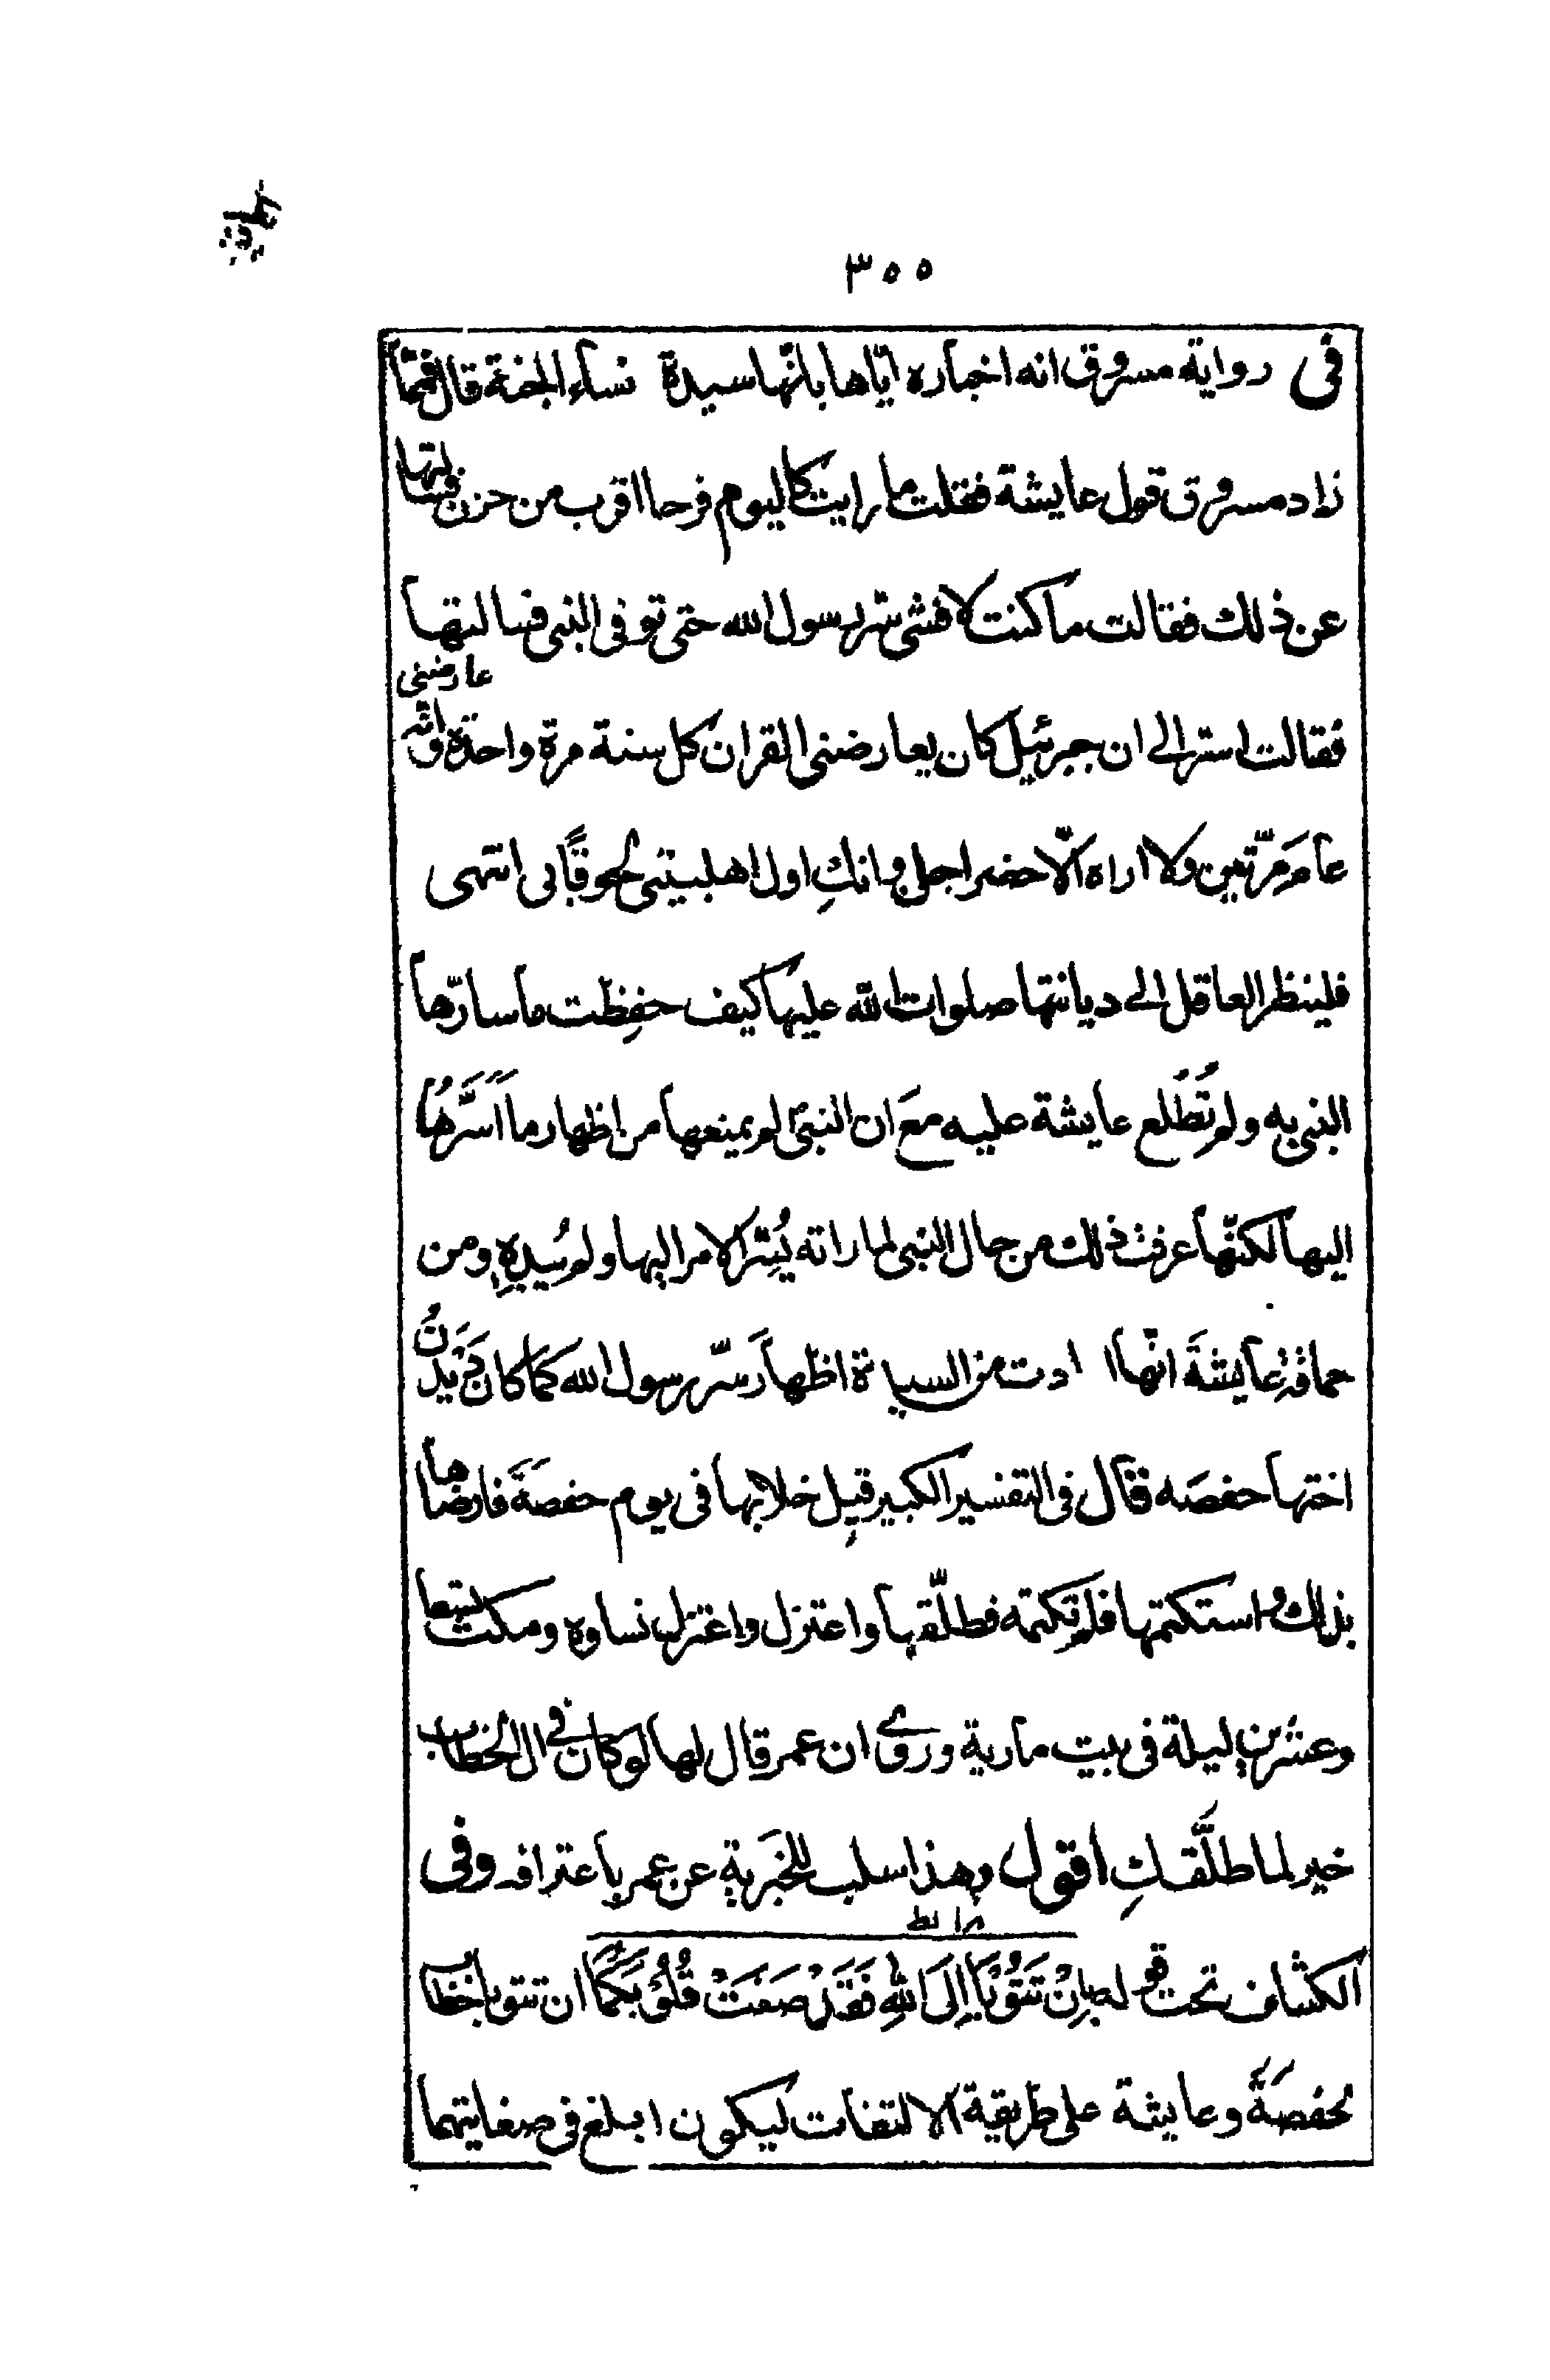 ٣٥٥
فى رواية مسروق انه اخباره ايّاها بانّها سيدة نساء الجنة قال فيما
زاد مسروق قول عايشة فقلت ما رايت كاليوم فرحا اقرب من حزن فسالتها
عن ذلك فقالت ما كنت لافشى سرّ رسول الله حتى توفى النبى فسالتها
فقالت اسرّ الى ان جبرئيل كان يعارضنى القران كل سنة مرة واحدة وانّه عارضنى
عام مرّتين ولا اراه الّا حضر اجلى وانكِ اول اهلبيتى لحوقًا بى انتهى
فلينظر العاقل الى ديانتها صلوات الله عليها كيف حفِظت ما سارّها
النبى به ولم تُطلع عايشة عليه مَعَ ان النبىّ لم يمنعها من اظهار ما اَسَرَّهُا
اليها لكنّها عرفت ذلك من حال النبى لما راته يُسِرّ الامر اليها ولم يُبدِهِ ومن
حماقة عايشَةَ انّها ادت من السبا ة اظهارَ سّر رسول الله كما كان دَيْدَنُ
اختها حفصَه قال فى التفسير الكبير قيل خلا بها فى يوم حفصَةَ فارضاها
بذلك واستكتمتها فلم تكتمه فطلّقها واعتزل واعتزل نساوه ومكث تسعا
وعشرين ليلة فى بيت مارية وروى ان عمر قال لها لو كان فى ال الخطاب
خير لما طلَّقكِ اقول وهذا سلب للخَيرية عن عمر باعترافه وفى
الكشاف تحت قوله اِنْ تَتُوْبَا اِلَى اللهِ فَقَدْ صَغَتْ قُلُوْبُكُمَا ان تتوبا خطاب
لحفصَةَ وعايشة على طريقة الالتفات ليكون ابلغ فى معاتبتهما